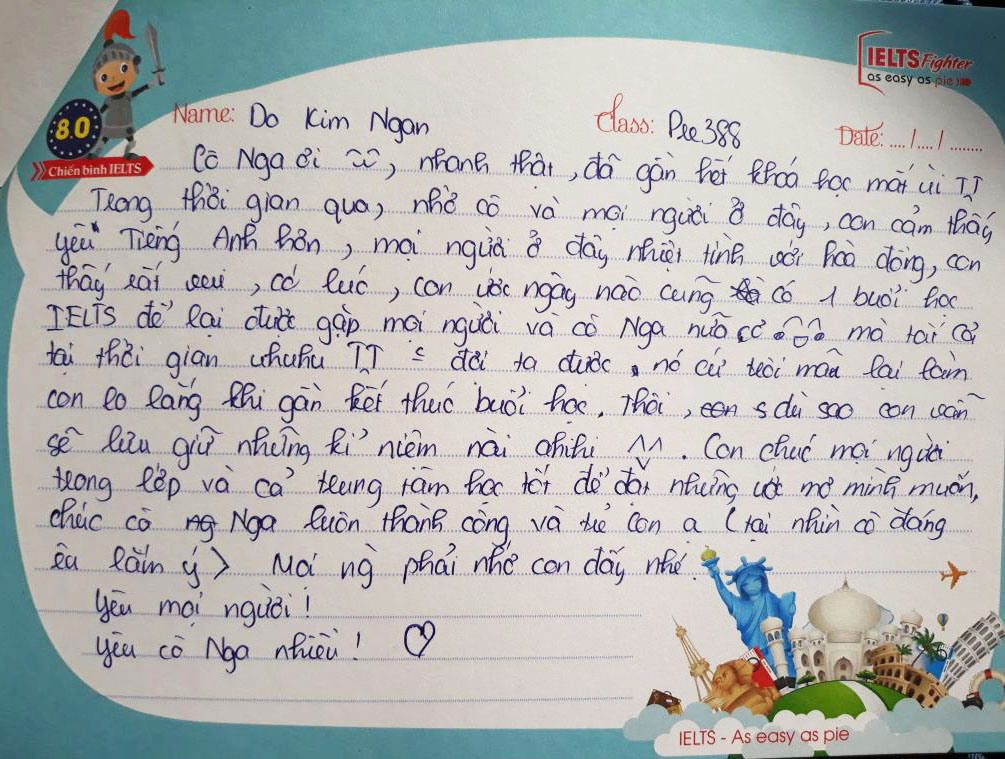 IELTS Fighter
as easy as pie
8.0
Chiến binh IELTS
Name: Do Kim Ngan Class: Pre388 Date: .... /.... / ........
Cô Nga ơi, nhanh thật, đã gần hết khoá học mất ùi TT
Trong thời gian qua, nhờ cô và mọi người ở đây, con cảm thấy
yêu Tiếng Anh hơn, mọi người ở đây nhiệt tình với hoà đồng, con
thấy rất vui, có lúc, con ước ngày nào cũng có 1 buổi học
IELTS để lại được gặp mọi người và cô Nga nữa cơ mà tất cả
tại thời gian uhuhu TT đợi ta được, nó cứ trôi mãi lại làm
con lo lắng khi gần kết thúc buổi học. Thôi, dù sao con vẫn
sẽ lưu giữ những kỉ niệm này ahihi ^^. Con chúc mọi người
trong lớp và cả trung tâm học tốt để đạt những ước mơ mình muốn,
chúc cô Nga luôn thành công và trẻ con ạ (tại nhìn cô đáng
êu lắm ý> Mọi ng phải nhớ con đấy nhé.
Yêu mọi người!
Yêu cô Nga nhiều! ♡
IELTS - As easy as pie